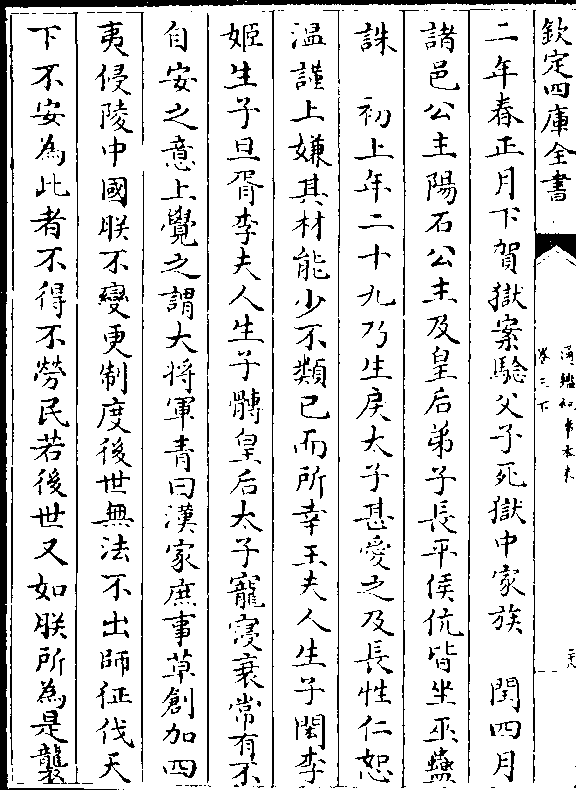 欽定四庫全書
通鑑紀事本末
卷三下
二年春正月下賀獄案驗父子死獄中家族　閏四月
諸邑公主陽石公主及皇后弟子長平侯伉皆坐巫蠱
誅　初上年二十九乃生戾太子甚愛之及長性仁恕
温謹上嫌其材能少不類已而所幸王夫人生子閎李
姬生子旦胥李夫人生子髆皇后太子寵寖衰常有不
自安之意上覺之謂大將軍青曰漢家庶事草創加四
夷侵陵中國朕不變更制度後世無法不出師征伐天
下不安為此者不得不勞民若後世又如朕所為是襲